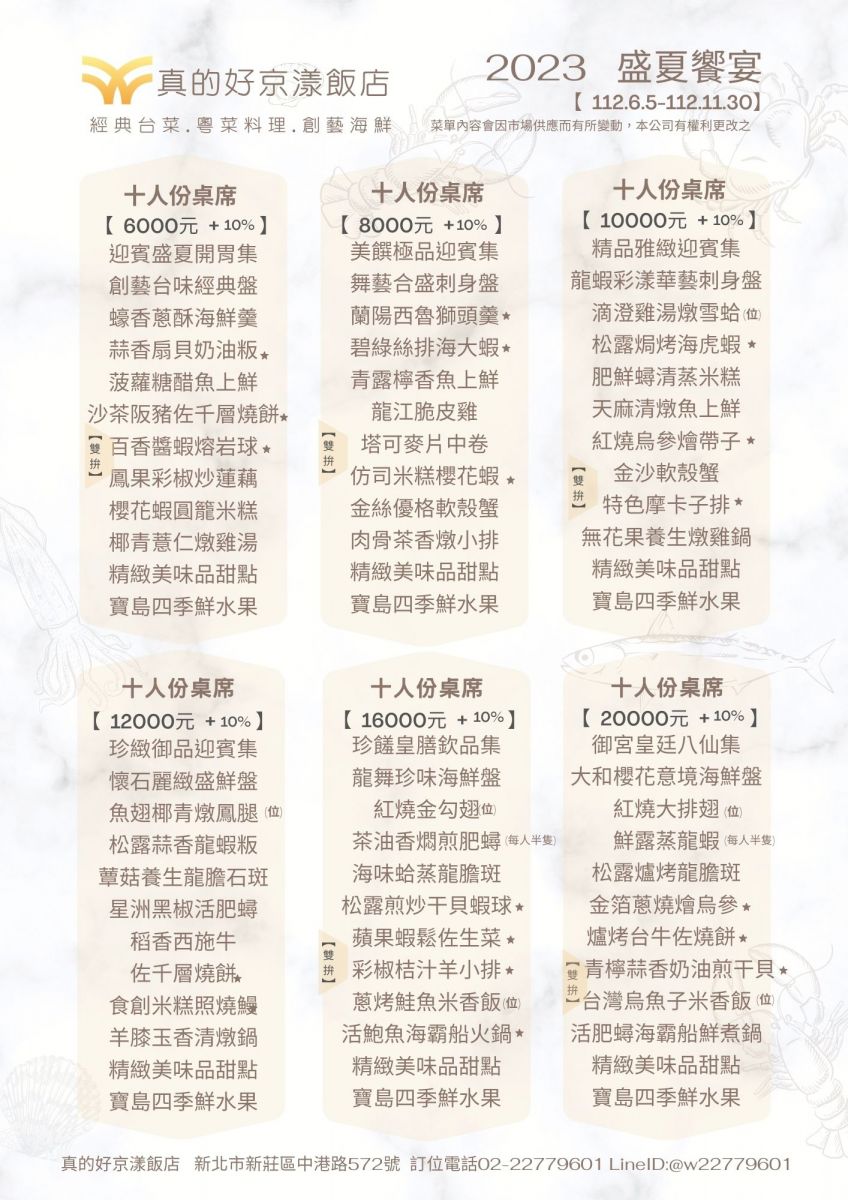 真的好京漾飯店
經典台菜.粵菜料理.創藝海鮮
2023 盛夏饗宴
【 112.6.5-112.11.30】
菜單內容會因市場供應而有所變動，本公司有權利更改之
十人份桌席
【 6000元 +10% 】
迎賓盛夏開胃集
創藝台味經典盤
蠔香蔥酥海鮮羹
蒜香扇貝奶油粄★
菠蘿糖醋魚上鮮
沙茶阪豬佐千層燒餅★
【雙拚】
百香醬蝦熔岩球★
鳳果彩椒炒蓮藕
櫻花蝦圓籠米糕
椰青薏仁燉雞湯
精緻美味品甜點
寶島四季鮮水果
十人份桌席
【 8000元 +10% 】
美饌極品迎賓集
舞藝合盛刺身盤
蘭陽西魯獅頭羹★
碧綠絲排海大蝦★
青露檸香魚上鮮
龍江脆皮雞
【雙拚】
塔可麥片中卷
仿司米糕櫻花蝦★
金絲優格軟殼蟹
肉骨茶香燉小排
精緻美味品甜點
寶島四季鮮水果
十人份桌席
【 10000元 +10% 】
精品雅緻迎賓集
龍蝦彩漾華藝刺身盤
滴澄雞湯燉雪蛤(位)
松露焗烤海虎蝦★
肥鮮蟳清蒸米糕
天麻清燉魚上鮮
紅燒烏參燴帶子★
【雙拚】
金沙軟殼蟹
特色摩卡子排★
無花果養生燉雞鍋
精緻美味品甜點
寶島四季鮮水果
十人份桌席
【 12000元 +10% 】
珍緻御品迎賓集
懷石麗緻盛鮮盤
魚翅椰青燉鳳腿(位)
松露蒜香龍蝦粄
蕈菇養生龍膽石斑
星洲黑椒活肥蟳
稻香西施牛
佐千層燒餅★
食創米糕照燒鰻★
羊膝玉香清燉鍋
精緻美味品甜點
寶島四季鮮水果
十人份桌席
【 16000元 +10% 】
珍饈皇膳欽品集
龍舞珍味海鮮盤
紅燒金勾翅(位)
茶油香燜煎肥蟳(每人半隻)
海味蛤蒸龍膽斑
松露煎炒干貝蝦球★
【雙拚】
蘋果蝦鬆佐生菜★
彩椒桔汁羊小排★
蔥烤鮭魚米香飯(位)
活鮑魚海霸船火鍋★
精緻美味品甜點
寶島四季鮮水果
十人份桌席
【 20000元 +10% 】
御宮皇廷八仙集
大和櫻花意境海鮮盤
紅燒大排翅(位)
鮮露蒸龍蝦(每人半隻)
松露爐烤龍膽斑
金箔蔥燒燴烏參★
爐烤台牛佐燒餅★
【雙拚】
青檸蒜香奶油煎干貝★
台灣烏魚子米香飯(位)
活肥蟳海霸船鮮煮鍋
精緻美味品甜點
寶島四季鮮水果
真的好京漾飯店 新北市新莊區中港路572號 訂位電話02-22779601 LineID:@w22779601